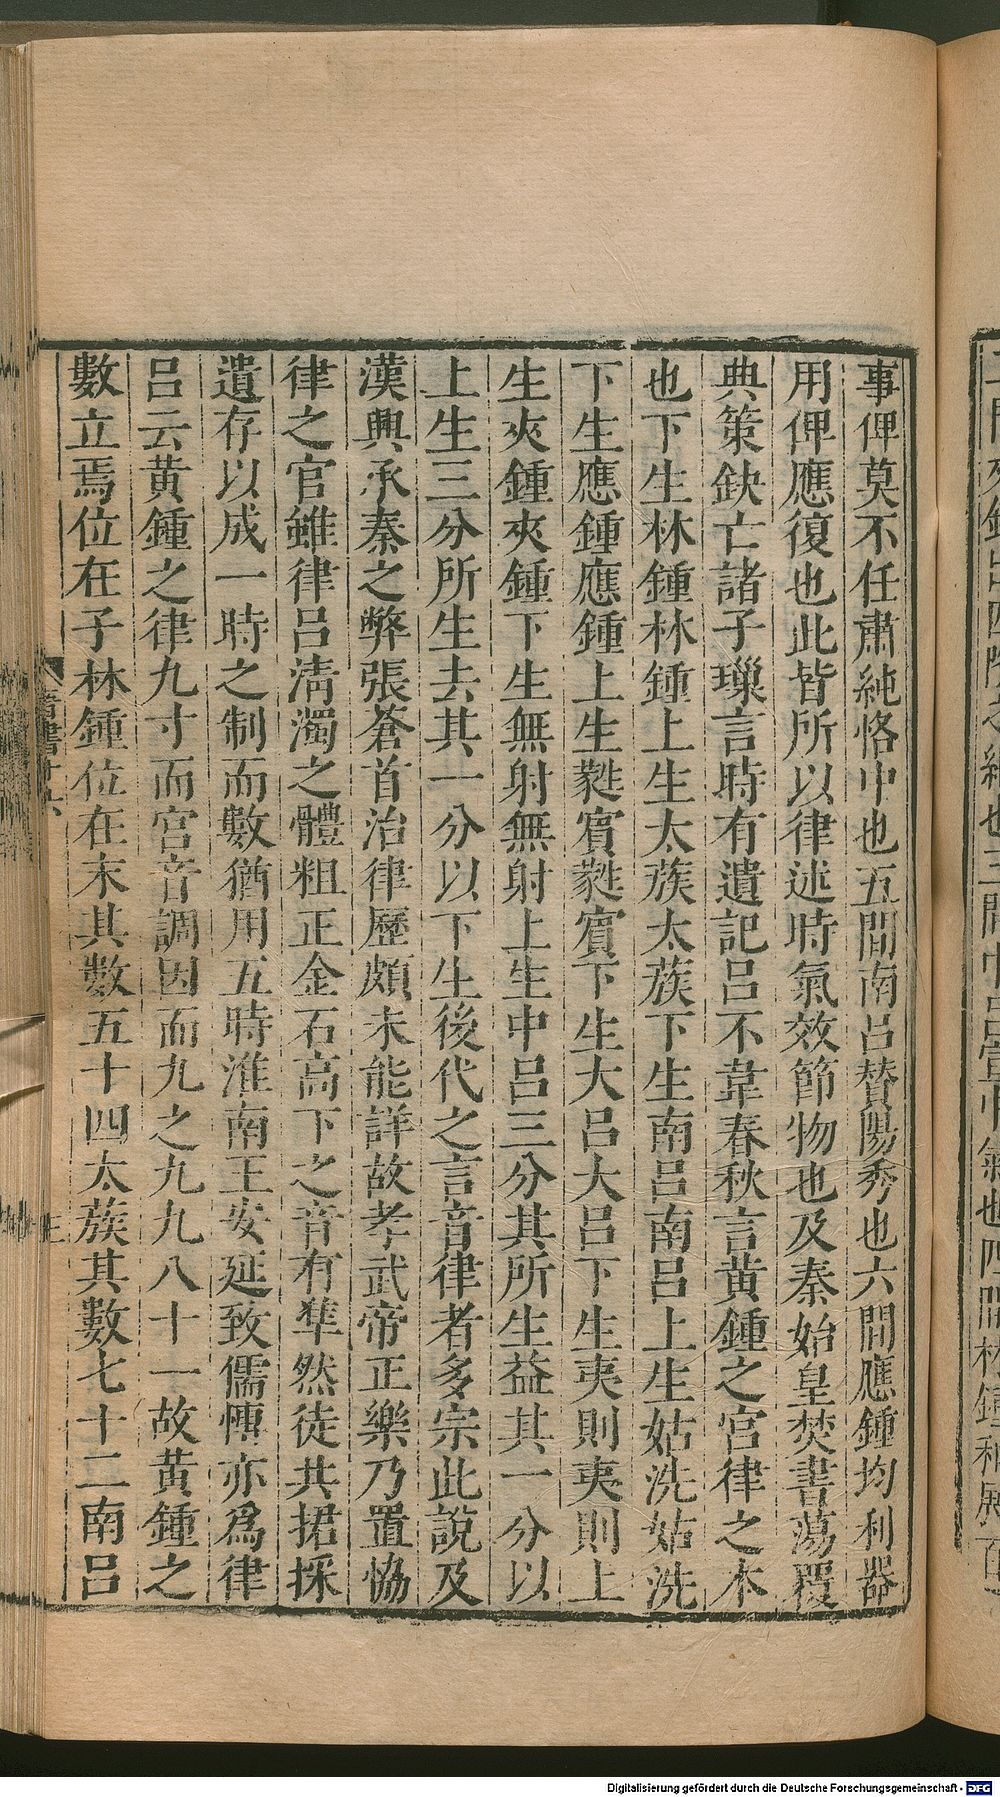 事俾莫不任肅純恪中也五間南呂贊陽秀也六間應鍾均利器
用俾應復也此皆所以律述時氣效節物也及秦始皇焚書蕩覆
典策缺亡諸子璅言時有遺記呂不韋春秋言黃鍾之宮律之本
也下生林鍾林鍾上生太蔟太蔟下生南呂南呂上生姑洗姑洗
下生應鍾應鍾上生蕤賓蕤賓下生大呂大呂下生夷則夷則上
生夾鍾夾鍾下生無射無射上生中呂三分其所生益其一分以
上生三分所生去其一分以下生後代之言音律者多宗此說及
漢興承秦之弊張蒼首治律歷頗未能詳故孝武帝正樂乃置協
律之官雖律呂清濁之體粗正金石高下之音有準然徒共捃採
遺存以成一時之制而數猶用五時淮南王安延致儒慱亦爲律
呂云黃鍾之律九寸而宮音調因而九之九九八十一故黃鍾之
數立焉位在子林鍾位在末其數五十四太蔟其數七十二南呂
晉書十六
三
Digitalisierung gefördert durch die Deutsche Forschungsgemeinschaft - DFG